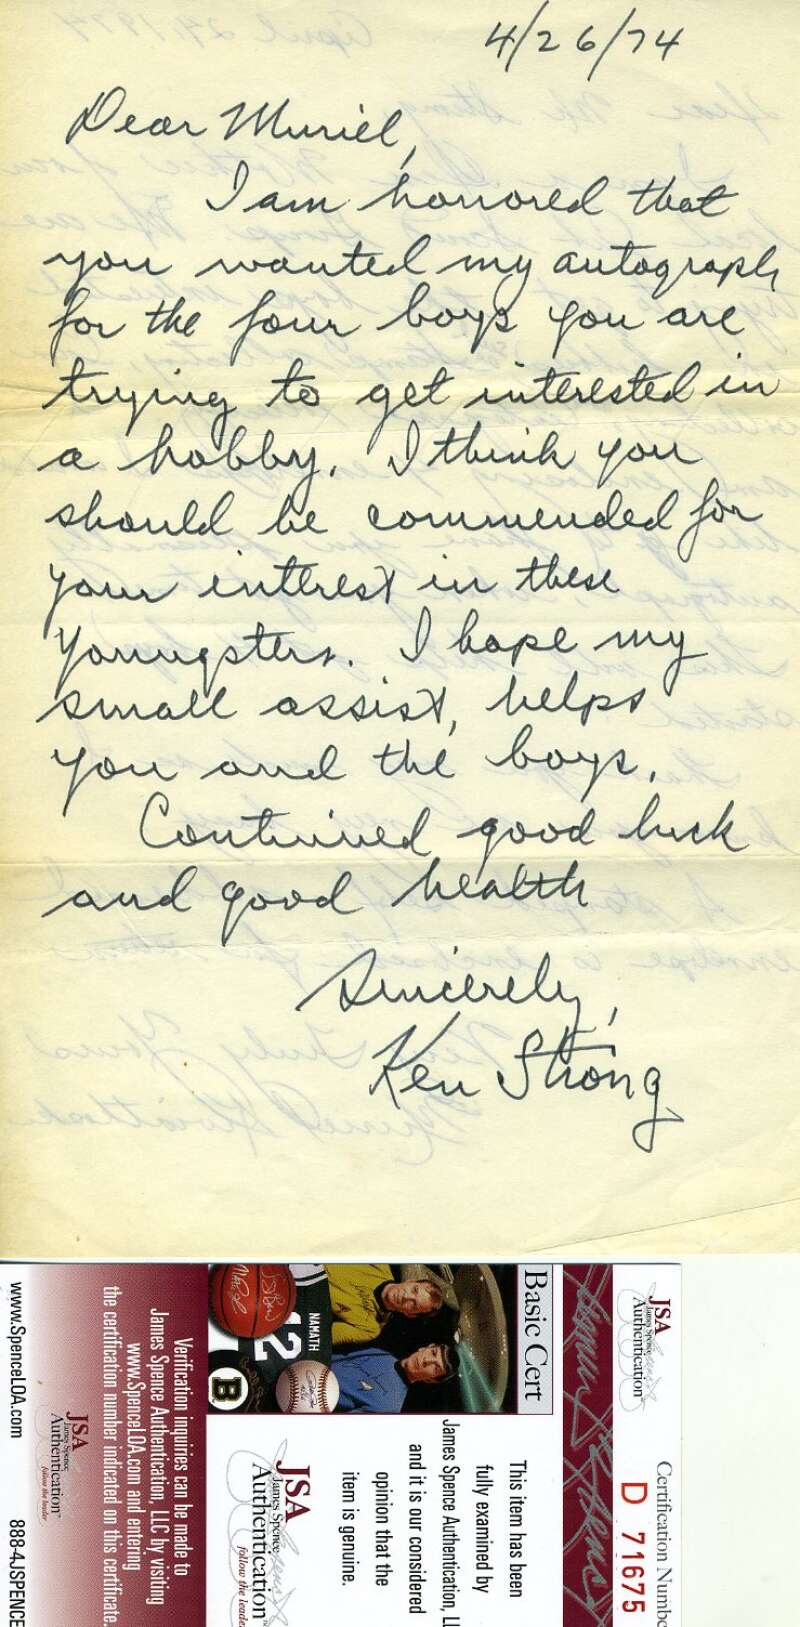 4/26/74
Dear Muriel,
I am honored that
you wanted my autograph
for the four boys you are
trying to get interested in
a hobby. I think you
should be commended for
your interest in these
youngsters. I hope my
small assist, helps
you and the boys.
Continued good luck
and good health
Sincerely,
Ken Strong
JSA
James Spence
Authentication
Certification Numbe
D 71675
Basic Cert
NAMATH
12
B
This item has been
fully examined by
James Spence Authentication, LL
and it is our considered
opinion that the
item is genuine.
JSA
James Spence
Authentication
follow the leade
Verification inquiries can be made to
James Spence Authentication, LLC by visiting
www.SpenceLOA.com and entering
the certification number indicated on this certificate.
JSA
James Spence
Authentication
follow the leader
www.SpenceLOA.com
888-4JSPENCE